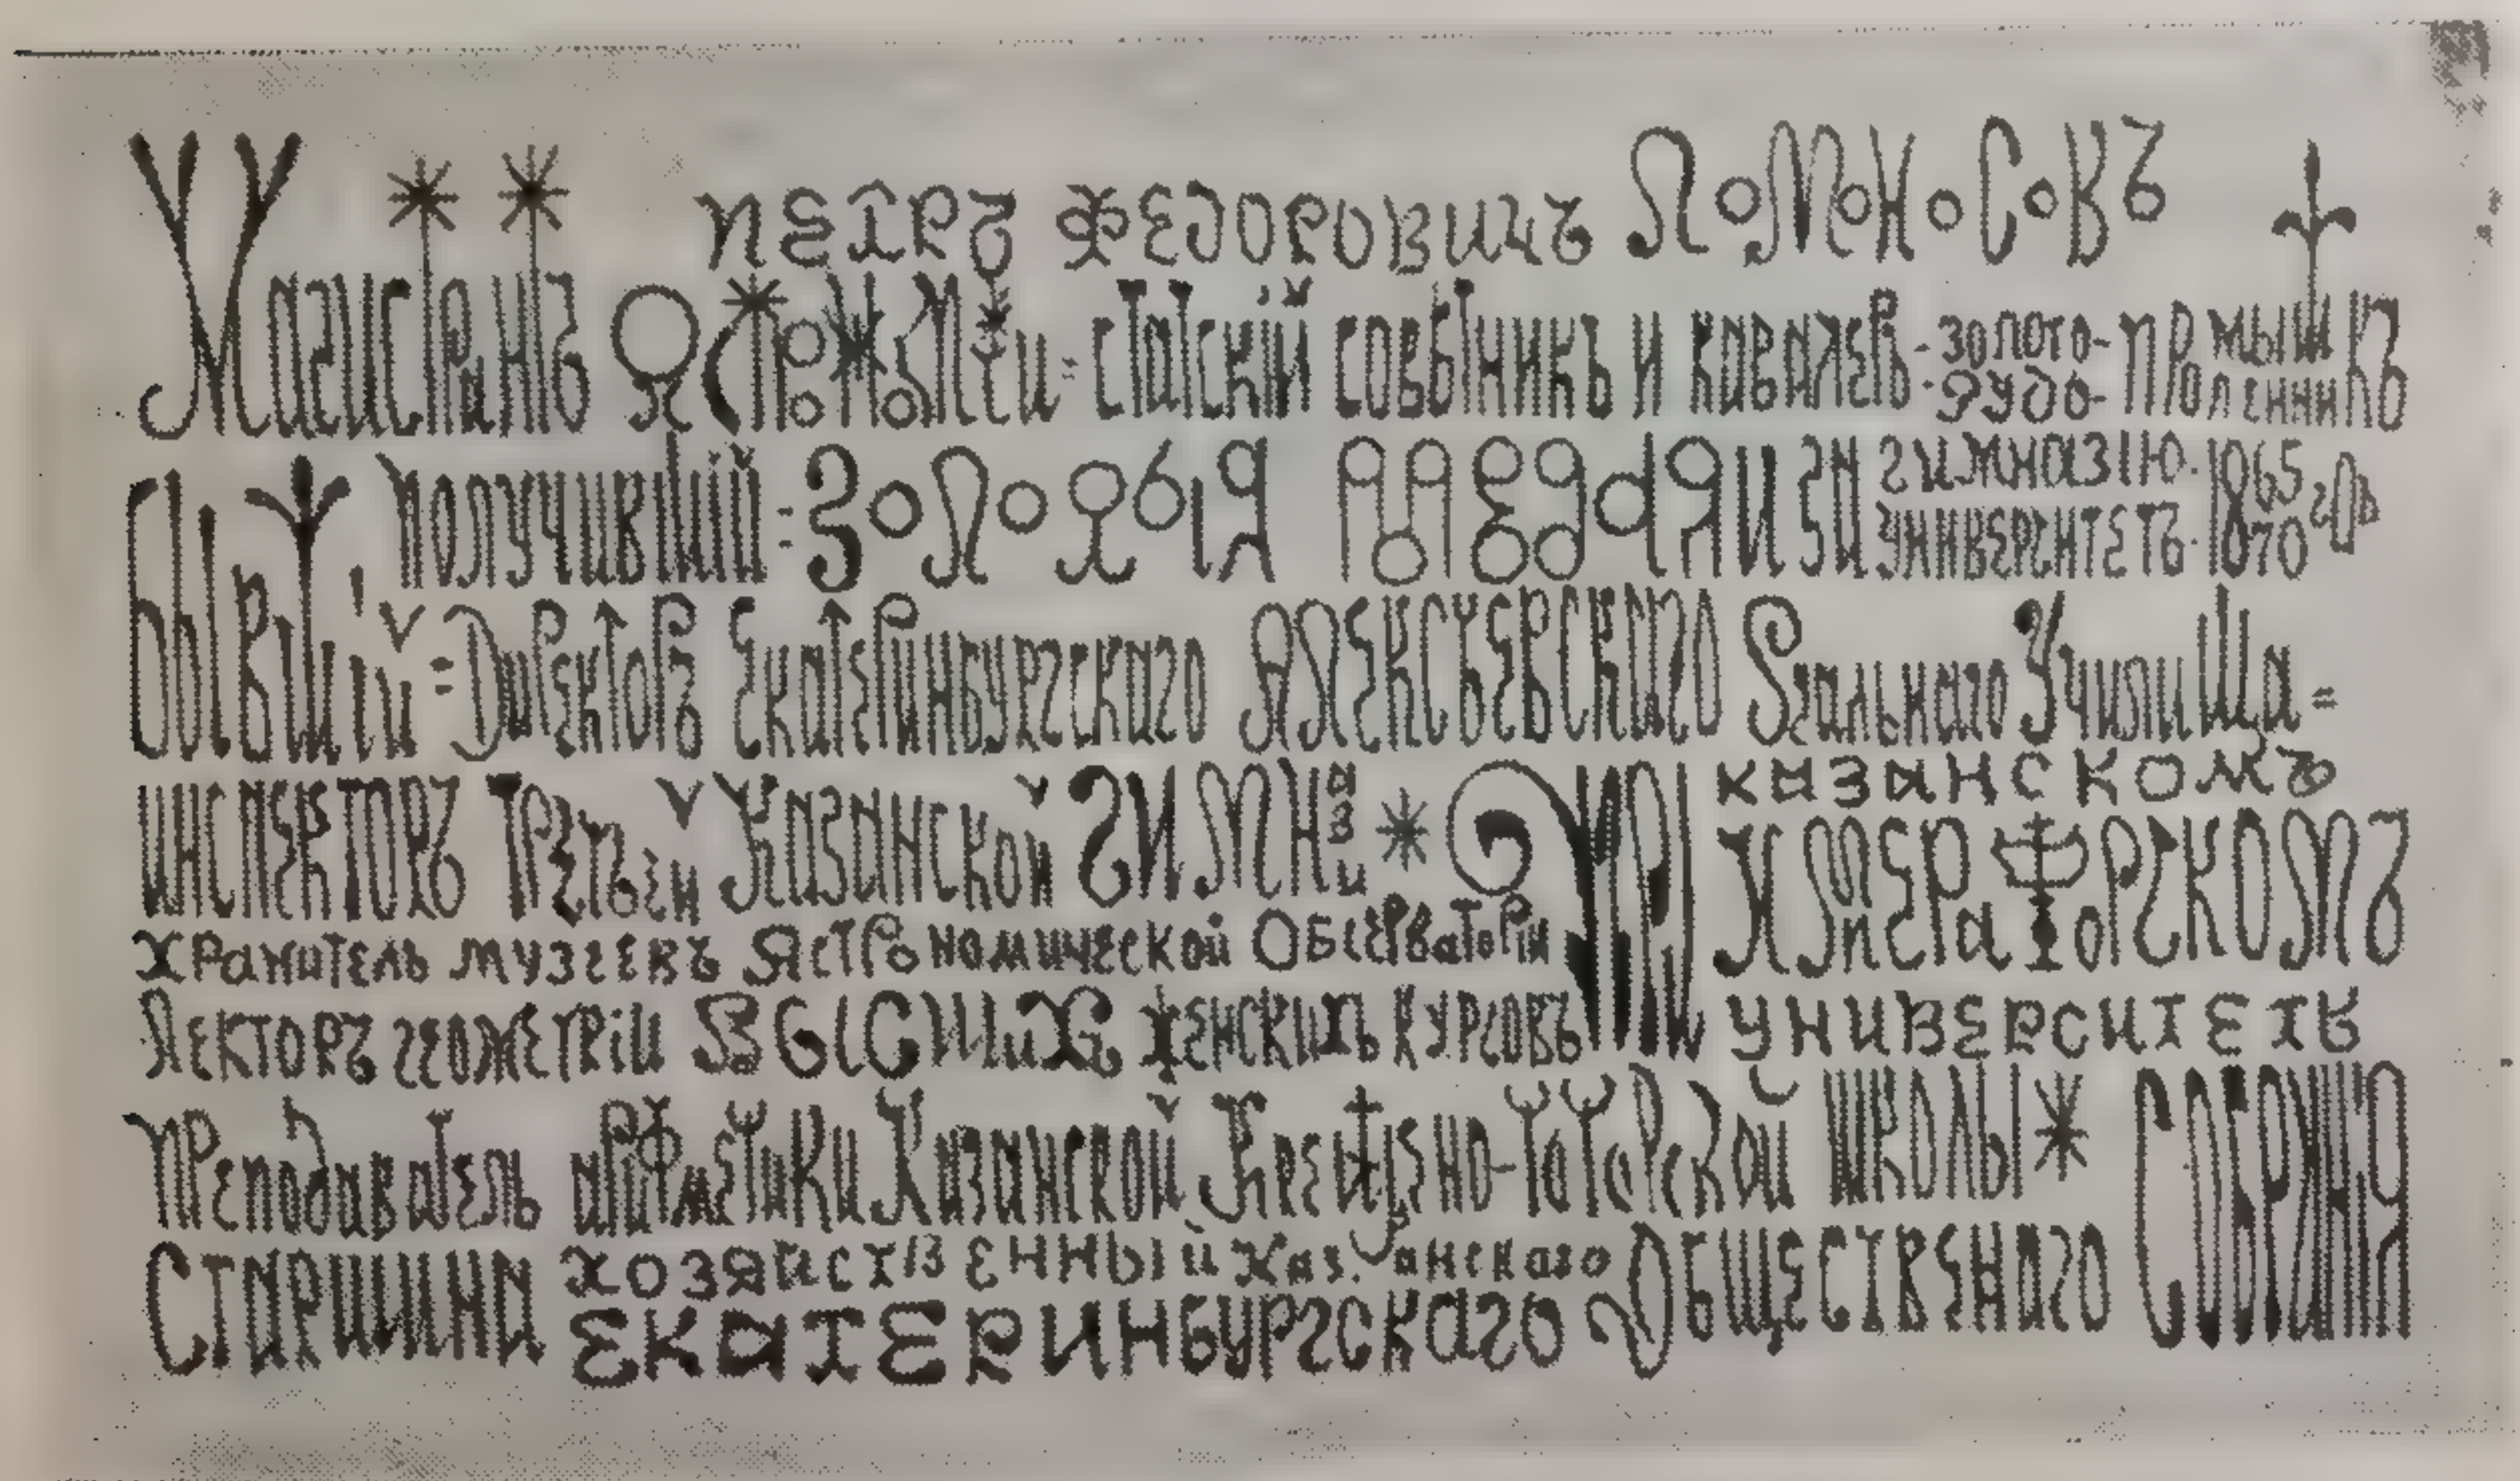 Петръ Федоровичъ Ломоносовъ
Магистрантъ Астрономіи = статскій совѣтникъ и кавалеръ - золото-рудо-промышленникъ
получившій = золотыя медали за гимназію 1865 университетъ 1870 годъ
бывшій = Директоръ Екатеринбургскаго Алексѣевскаго Реальнаго Училища =
инспекторъ Третьей Казанской гимназіи * при Казанскомъ
Императорскомъ
Хранитель музеевъ Астрономической Обсерваторіи
Университетѣ
Лекторъ геометріи Высшихъ женскихъ курсовъ
Преподаватель ариѳметики Казанской Крещено-Татарской школы *
Старшина хозяйственный Казанскаго
Екатеринбургскаго Общественнаго Собранія